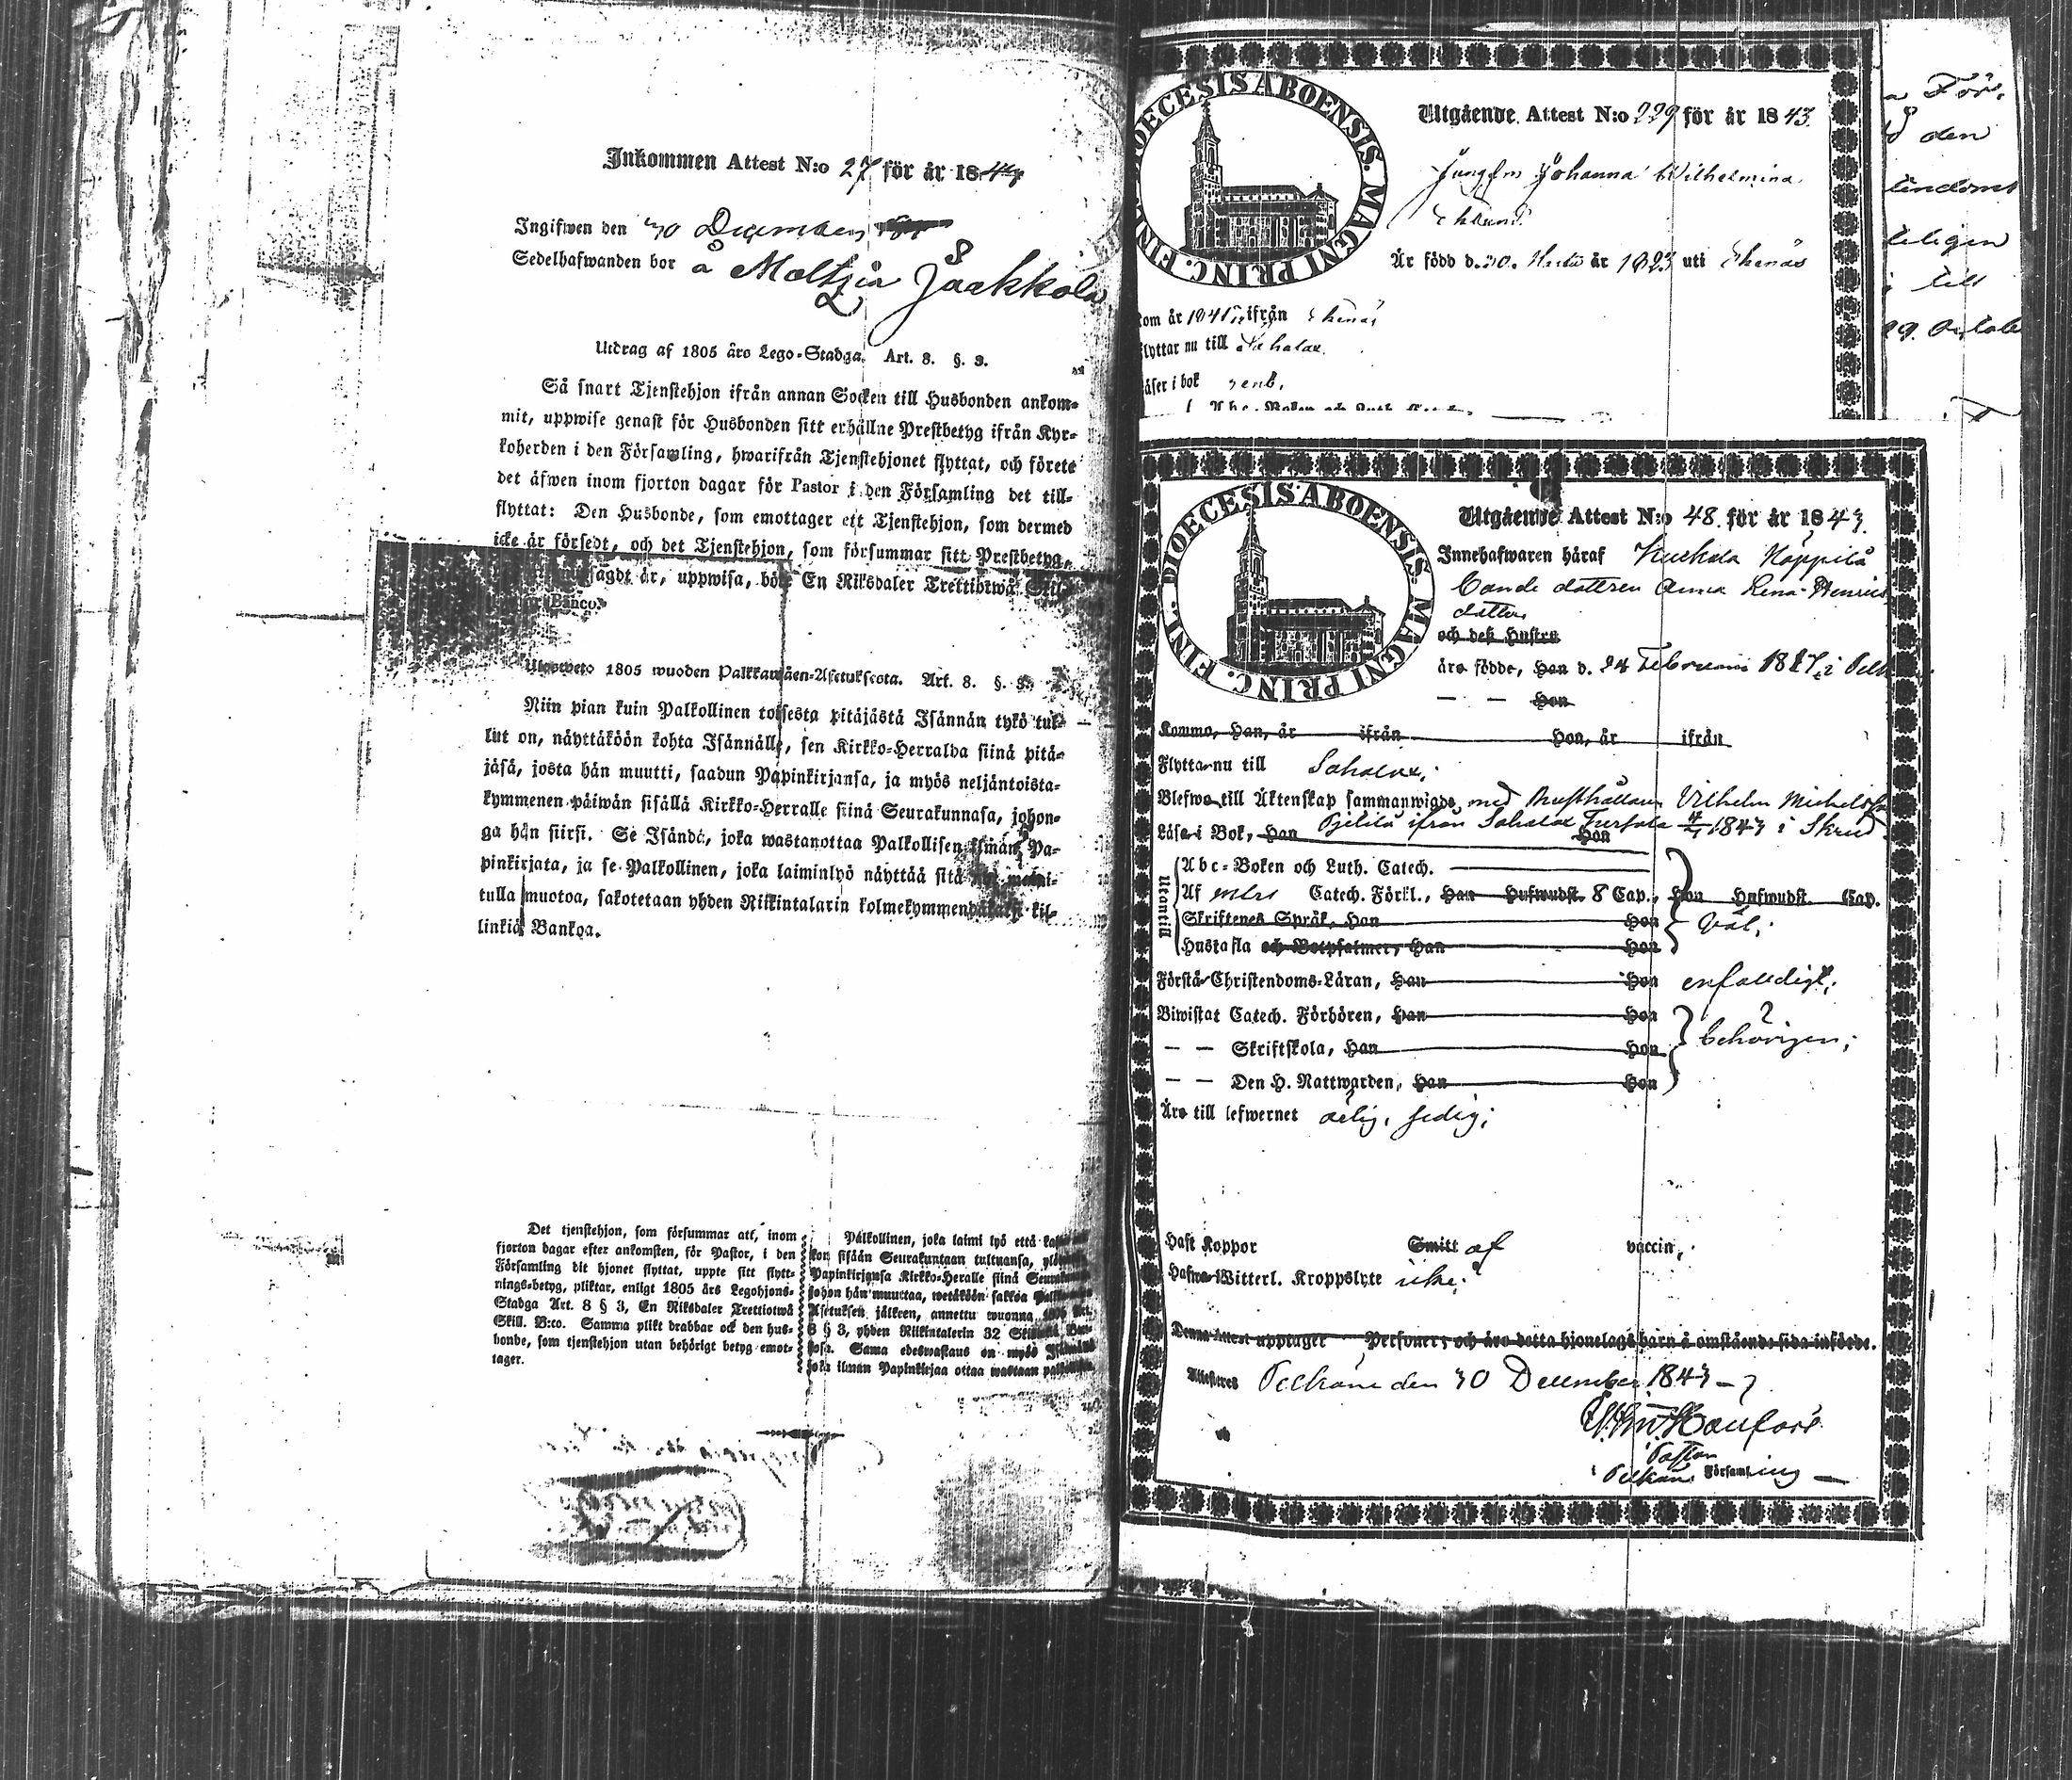 Inkommen Attest N:o 27 för år 1844
Ingifwen den 30 December
Sedelhafwanden bor å Moltzia Jaakkola
Utdrag af 1805 års Lego-Stadga. Art. 8. §. 3.
Så snart Tjenstehjon ifrån annan Socken till Husbonden ankom-
mit, uppwise genast för Husbonden sitt erhållne Prestbetyg ifrån Kyr-
koherden i den Församling, hwarifrån Tjenstehjonet flyttat, och förete
det äfwen inom fjorton dagar för Pastor i den Församling det till-
flyttat: Den Husbonde, som emottager ett Tjenstehjon, som dermed
icke är försedt, och det Tjenstehjon, som försummar sitt Prestbetyg,
sagdt är, uppwisa, böte En Riksdaler Trettiotwå Skil-
Banco.
Ulosweto 1805 wuoden Palkkawäen-Asetuksesta. Art. 8. §. 3.
Niin pian kuin Palkollinen toisesta pitäjästä Isännän tykö tul-
lut on, näyttäköön kohta Isännälle, sen Kirkko-Herralda siinä pitä-
jäsä, josta hän muutti, saadun Papinkirjansa, ja myös neljäntoista-
kymmenen päiwän sisällä Kirkko-Herralle siinä Seurakunnasa, johon-
ga hän siirsi. Se Isändä, joka wastanottaa Palkollisen ilman Pa-
pinkirjata, ja se Palkollinen, joka laiminlyö näyttää sitä nyt maini-
tulla muotoa, sakotetaan yhden Riikintalarin kolmekymmendäkaksi kil-
linkiä Bankoa.
Det tjenstehjon, som försummar att, inom
fjorton dagar efter ankomsten, för Pastor, i den
Församling dit hjonet flyttat, uppte sitt flytt-
nings-betyg, pliktar, enligt 1805 års Legohjons-
Stadga Art. 8 § 3, En Riksdaler Trettiotwå
Skill. B:co. Samma plikt drabbar ock den hus-
bonde, som tjenstehjon utan behörigt betyg emot-
tager.
Palkollinen, joka laimi lyö että
sisään Seurakuntaan tultuansa,
Papinkirjansa Kirkko-Heralle siinä
johon hän muuttaa, wetäköön sakkoa
Asetuksen jälkeen, annettu wuonna
8 § 3, yhden Riikintalerin 32
Sama edeswastaus on myös
joka ilman Papinkirjaa ottaa wastaan
FINL. DIOECESIS ABOENSIS. MAGNI PRINC.
Utgående Attest N:o 229 för år 1843
Jungfru Johanna Wilhelmina
Är född d. 30. år 1823 uti Ekenäs
kom år 1841 ifrån Ekenäs
flyttar nu till Sahalax.
läser i bok renb,
Abc-Boken och Luth.
a För,
den
till
29. Octob
FINL. DIOECESIS ABOENSIS. MAGNI PRINC.
Utgående Attest N:o 48. för år 1843.
Innehafwaren häraf Kuckola Köppilä
Bonde dottren Anna Lena Henrics
dotter
och deß Hustru
äro födde, Han d. 24 Februari 1827, i Pelk
— — Hon
Kommo, Han, år ifrån Hon, år ifrån
Flytta nu till Sahalax;
Blefwo till Äktenskap sammanwigde med Rusthållaren Vilhelm Michelsson
Pjetilä ifrån Sahalax Turpola 1843 i Skrud
Läsa i Bok, Han Hon
Utantill
Abc-Boken och Luth. Catech.
Af Catech. Förkl., Han Hufwudst. 8 Cap., Hon Hufwudst. Cap.
Skriftenes Språk, Han Hon väl;
Hustafla och Botpsalmer, Han Hon
Förstå Christendoms-Läran, Han Hon enfaldigt;
Biwistat Catech. Förhören, Han Hon
— — Skriftskola, Han Hon behörigen;
— — Den H. Nattwarden, Han Hon
Äro till lefwernet ärlig, sedig;
Haft Koppor Smitt af vaccin;
Hafwa Witterl. Kroppslyte icke;
Denna Attest upptager Personer, och äro detta hjonelags barn å omstående sida införde.
Attesteras Pelkäne den 30 December 1843
Pastor
i Pelkäne Församling